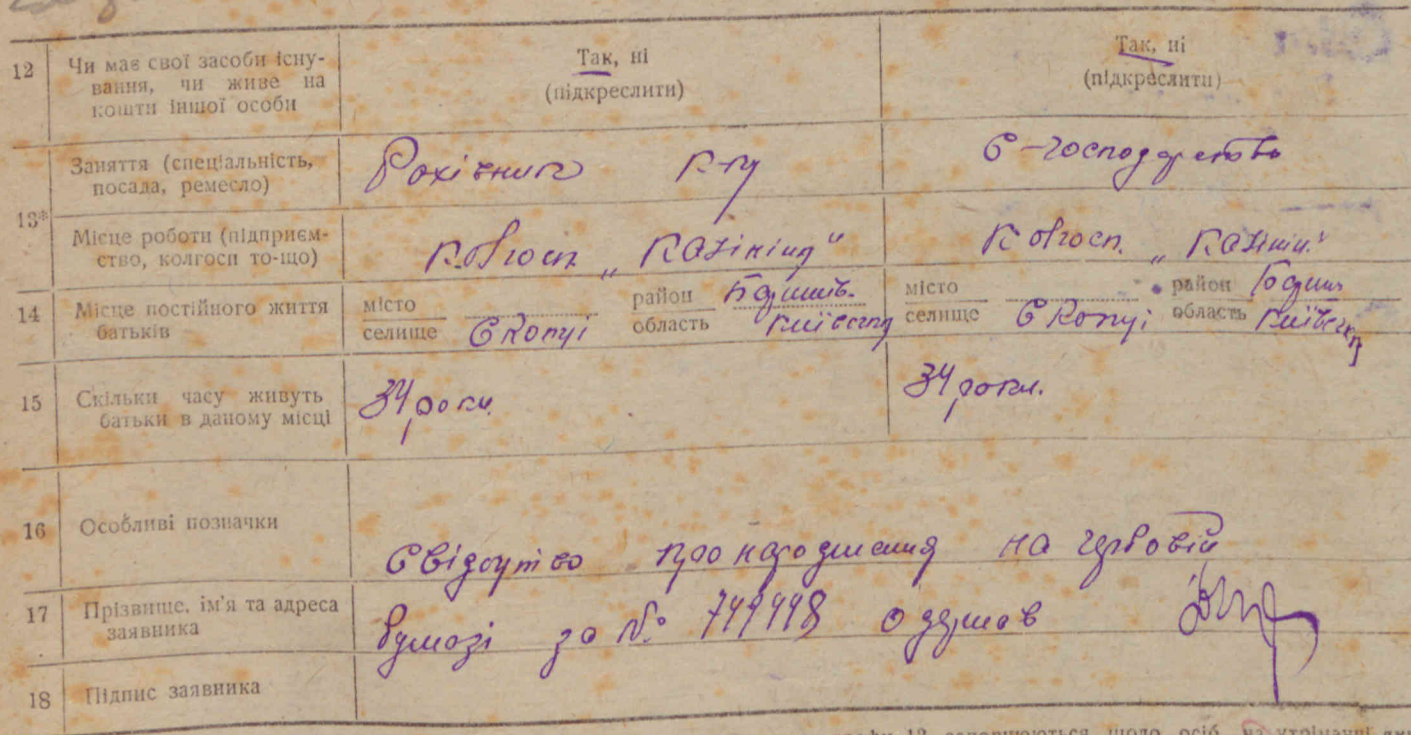 12 Чи має свої засоби існу-
вання, чи живе на
кошти іншої особи
Так, ні
(підкреслити)
Так, ні
(підкреслити)
13*
Заняття (спеціальність,
посада, ремесло)
Рахівник к-ту
С-господарство
Місце роботи (підприєм-
ство, колгосп то-що)
Колгосп „Калініна"
Колгосп „Калініна"
14 Місце постійного життя
батьків
місто
селище
Скопці
район
область
Київська
місто
селище
Скопці
район
область
15 Скільки часу живуть
батьки в даному місці
34 роки
34 роки.
16 Особливі позначки
Свідоцтво про народження на гербовій
17 Прізвище, ім'я та адреса
заявника
бумазі за № 749998 одержав
18 Підпис заявника
12 заповнюються щодо осіб, на утриманні